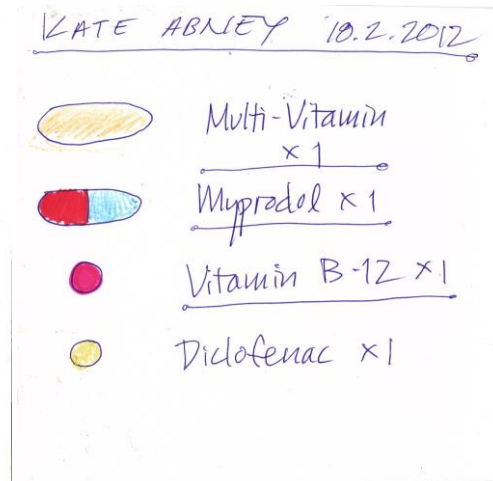 KATE ABNEY 18.2.2012
Multi-Vitamin
x 1
Myprodol x 1
Vitamin B-12 x 1
Diclofenac x 1